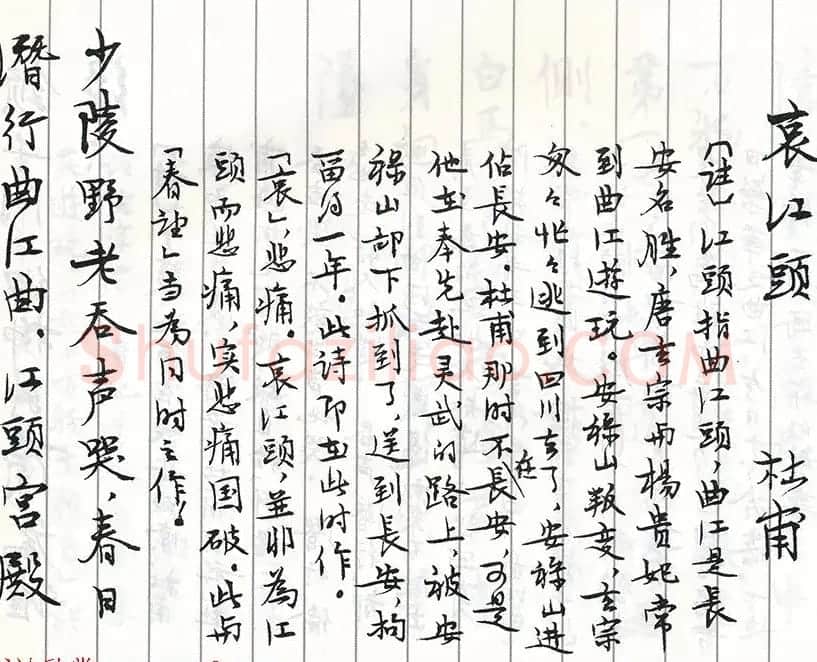 哀江頭　杜甫
「註」江頭指曲江頭，曲江是長
安名胜，唐玄宗与楊貴妃常
到曲江遊玩。安祿山叛变，玄宗
匆々忙々逃到四川去了，安祿山进
佔長安。杜甫那时不在長安，可是
他在奉先赴灵武的路上，被安
祿山部下抓到了，送到長安，拘
留了一年。此詩即在此时作。
「哀」，悲痛。哀江頭，並非為江
頭而悲痛，实悲痛国破。此与
「春望」当為同时之作！
少陵野老吞声哭，春日
潛行曲江曲。江頭宮殿
Shufaziliao.COM